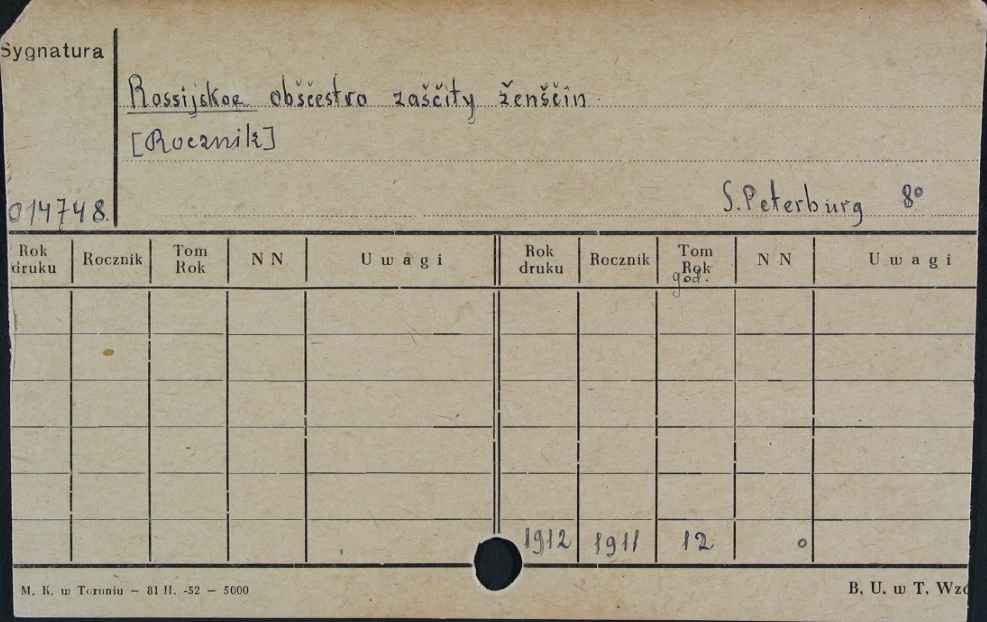 Sygnatura
Rossijskoe obščestvo zaščity ženščin
[Rocznik]
014748.
S. Peterburg 8°
Rok druku Rocznik Tom Rok NN Uwagi Rok druku Rocznik Tom Rok god. NN Uwagi
1912 1911 12 0
M. K. w Toruniu — 81 II. -52 — 5000
B. U. w T.